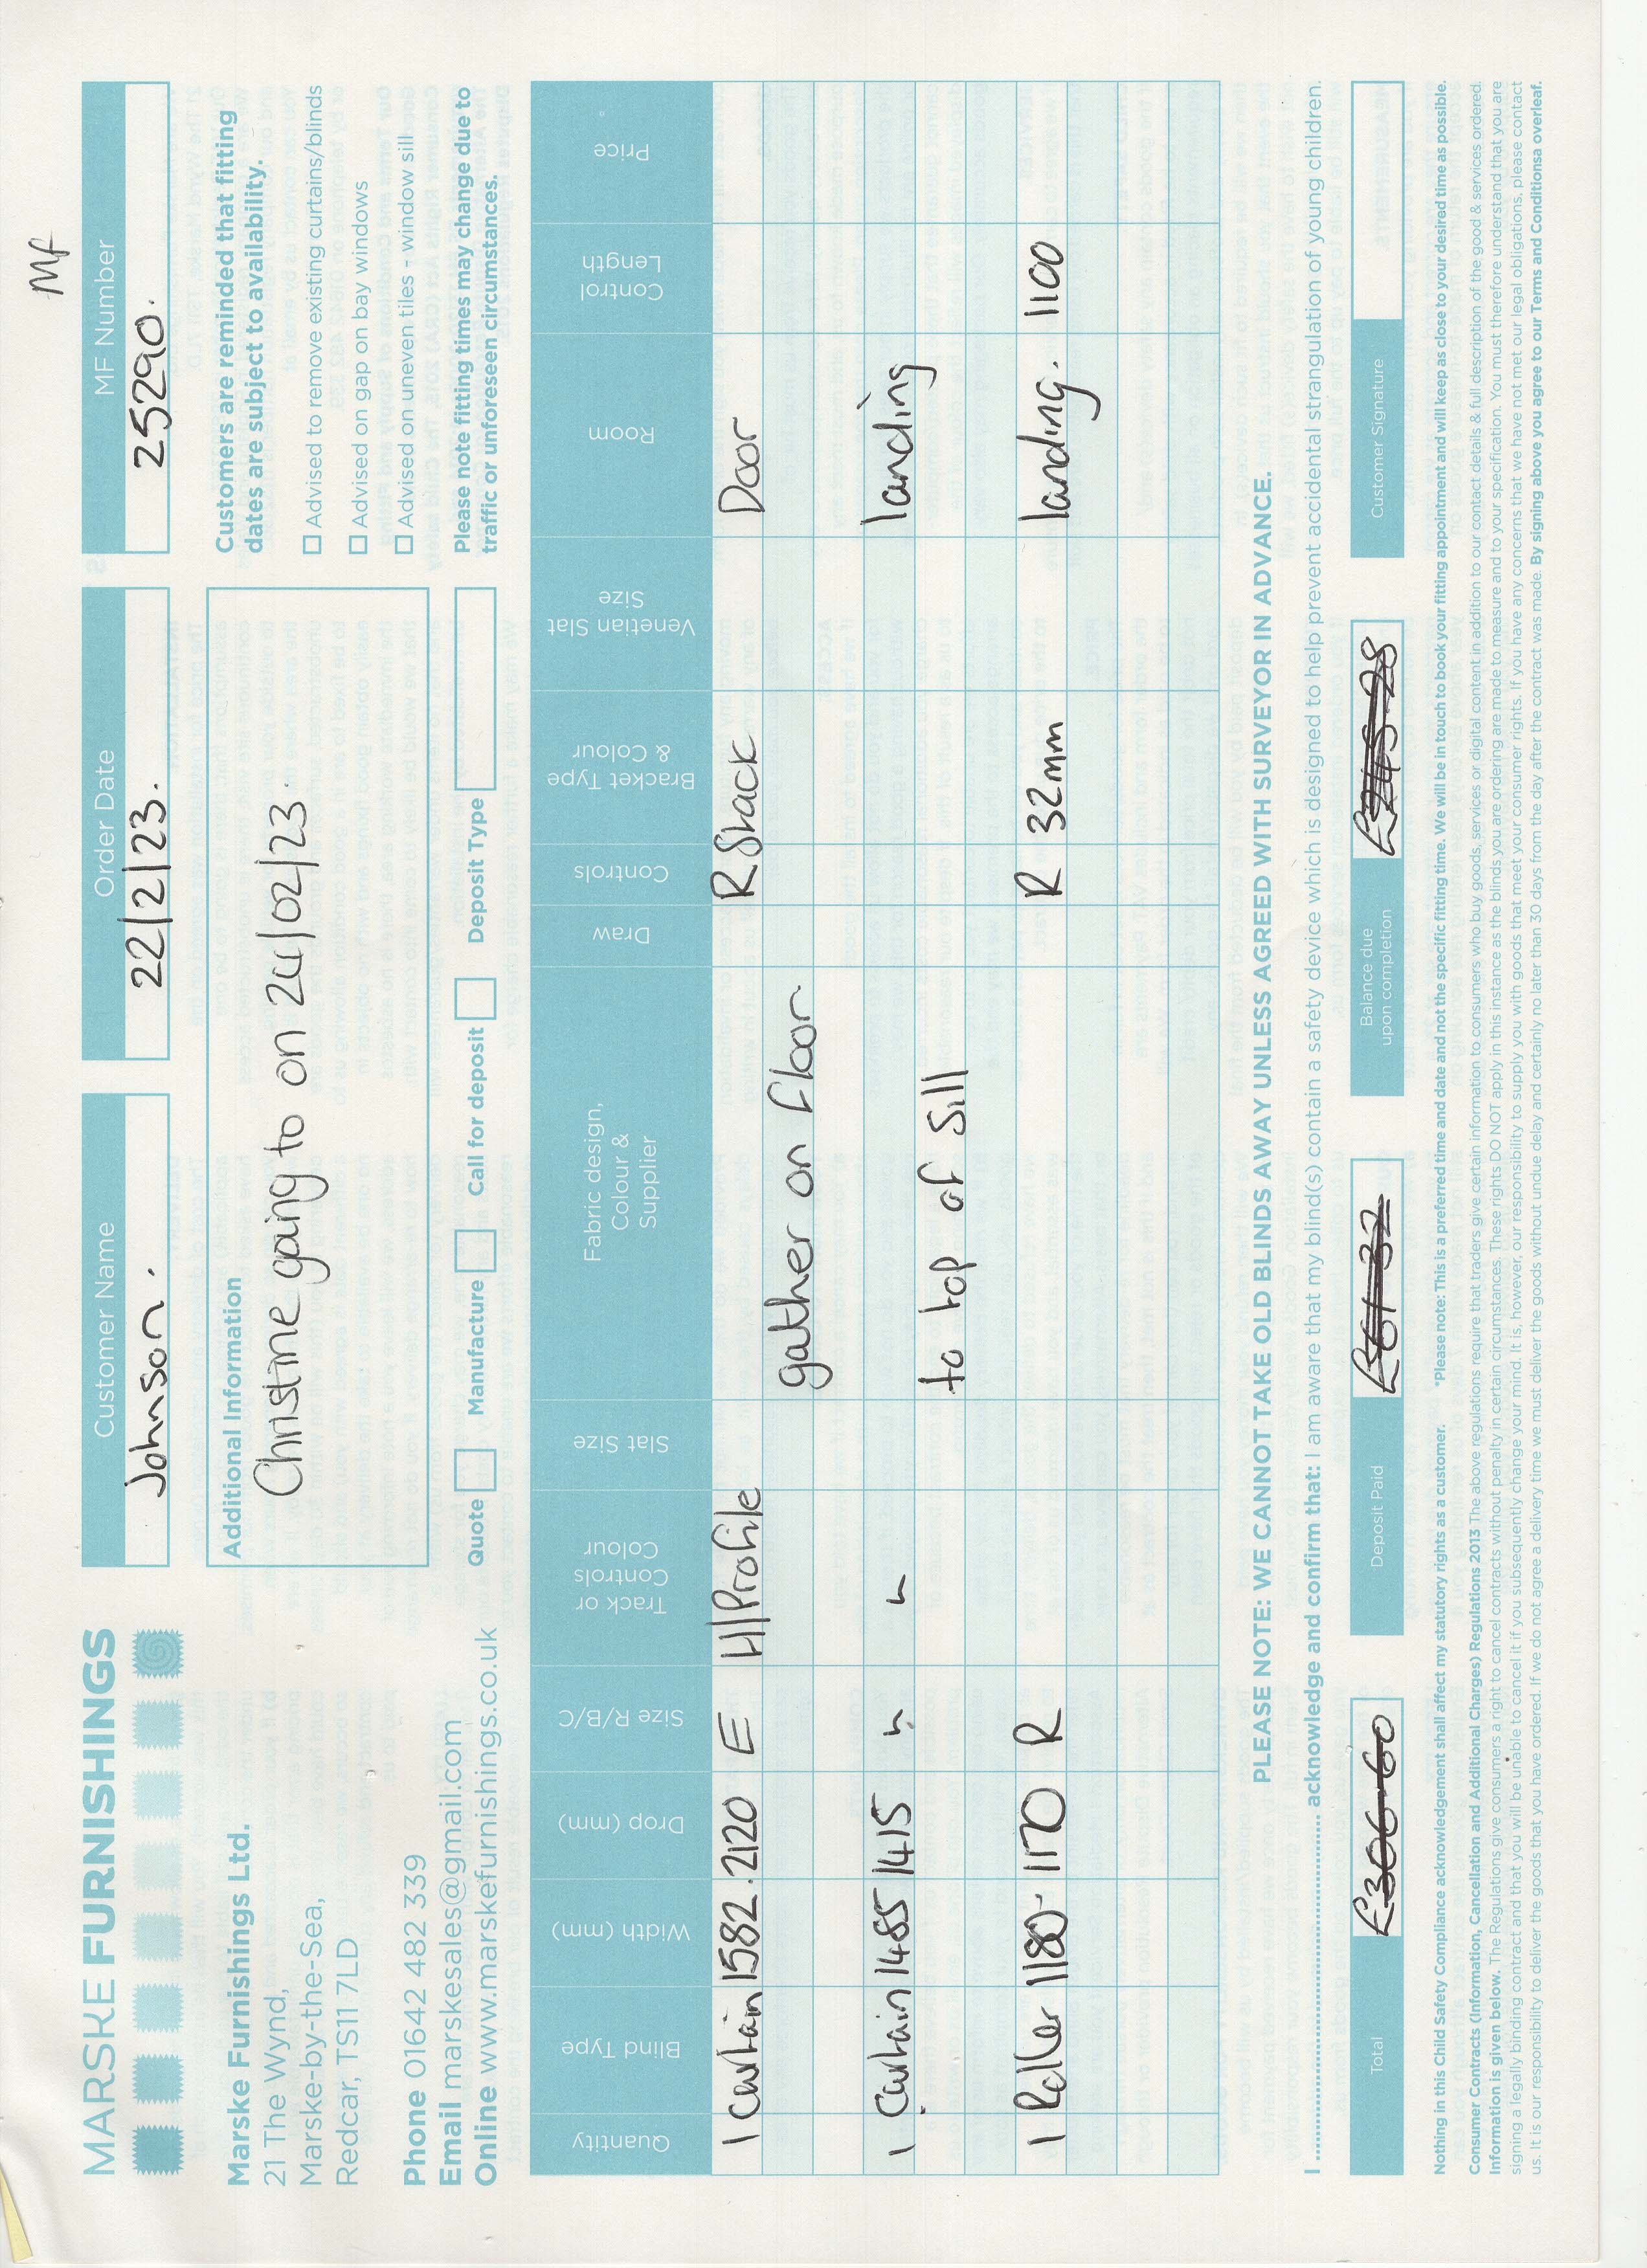 MF
MARSKE FURNISHINGS
Marske Furnishings Ltd.
21 The Wynd,
Marske-by-the-Sea,
Redcar, TS11 7LD
Phone 01642 482 339
Email marskesales@gmail.com
Online www.marskefurnishings.co.uk
Customer Name
Johnson.
Order Date
22/2/23.
MF Number
25290.
Additional Information
Christine going to on 24/02/23.
Quote Manufacture Call for deposit Deposit Type
Customers are reminded that fitting
dates are subject to availability.
Advised to remove existing curtains/blinds
Advised on gap on bay windows
Advised on uneven tiles - window sill
Please note fitting times may change due to
traffic or unforeseen circumstances.
Quantity Blind Type Width (mm) Drop (mm) Size R/B/C Track or Controls Colour Slat Size Fabric design, Colour & Supplier Draw Controls Bracket Type & Colour Venetian Slat Size Room Control Length Price
1 Curtain 1582 . 2120 E H/Profile R Stack Door
gather on floor
1 Curtain 1485 1415 " " landing
to top of sill
1 Roller 1180 - 1170 R R 32mm landing. 1100
PLEASE NOTE: WE CANNOT TAKE OLD BLINDS AWAY UNLESS AGREED WITH SURVEYOR IN ADVANCE.
I .......... acknowledge and confirm that: I am aware that my blind(s) contain a safety device which is designed to help prevent accidental strangulation of young children.
Total £306-60 Deposit Paid £61-32 Balance due upon completion Customer Signature
Nothing in this Child Safety Compliance acknowledgement shall affect my statutory rights as a customer. *Please note: This is a preferred time and date and not the specific fitting time. We will be in touch to book your fitting appointment and will keep as close to your desired time as possible.
Consumer Contracts (Information, Cancellation and Additional Charges) Regulations 2013 The above regulations require that traders give certain information to consumers who buy goods, services or digital content in addition to our contact details & full description of the good & services ordered.
Information is given below. The Regulations give consumers a right to cancel contracts without penalty in certain circumstances. These rights DO NOT apply in this instance as the blinds you are ordering are made to measure and to your specification. You must therefore understand that you are
signing a legally binding contract and that you will be unable to cancel it if you subsequently change your mind. It is, however, our responsibility to supply you with goods that meet your consumer rights. If you have any concerns that we have not met our legal obligations, please contact
us. It is our responsibility to deliver the goods that you have ordered. If we do not agree a delivery time we must deliver the goods without undue delay and certainly no later than 30 days from the day after the contract was made. By signing above you agree to our Terms and Conditionsa overleaf.